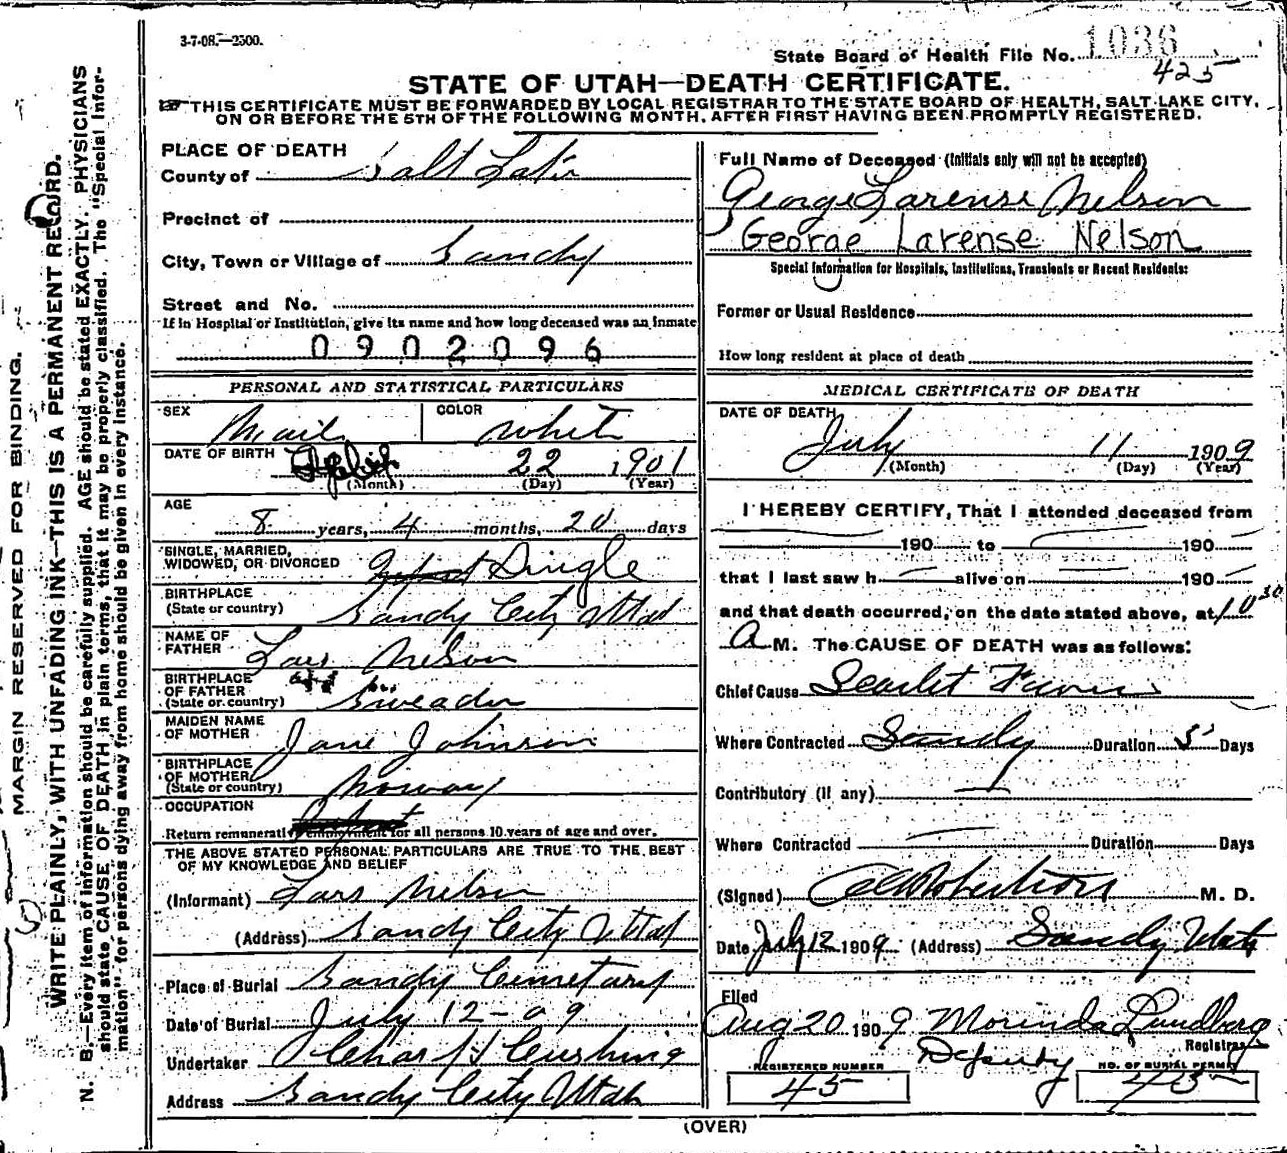 3-7-08.—2500.
State Board of Health File No. 1036
425
STATE OF UTAH—DEATH CERTIFICATE.
THIS CERTIFICATE MUST BE FORWARDED BY LOCAL REGISTRAR TO THE STATE BOARD OF HEALTH, SALT LAKE CITY,
ON OR BEFORE THE 5TH OF THE FOLLOWING MONTH, AFTER FIRST HAVING BEEN PROMPTLY REGISTERED.
PLACE OF DEATH
County of Salt Lake
Precinct of
City, Town or Village of Sandy
Street and No.
If in Hospital or Institution, give its name and how long deceased was an inmate
0902096
PERSONAL AND STATISTICAL PARTICULARS
SEX Mail COLOR White
DATE OF BIRTH 22 1901
(Month) (Day) (Year)
AGE
8 years, 4 months, 20 days
SINGLE, MARRIED,
WIDOWED, OR DIVORCED Single
BIRTHPLACE
(State or country) Sandy City Utah
NAME OF
FATHER Lars Nelson
BIRTHPLACE
OF FATHER
(State or country) Sweaden
MAIDEN NAME
OF MOTHER Jane Johnson
BIRTHPLACE
OF MOTHER
(State or country) Norway
OCCUPATION
Return remunerative employment for all persons 10 years of age and over.
THE ABOVE STATED PERSONAL PARTICULARS ARE TRUE TO THE BEST
OF MY KNOWLEDGE AND BELIEF
(Informant) Lars Nelson
(Address) Sandy City Utah
Place of Burial Sandy Cemetary
Date of Burial July 12-09
Undertaker Chas H Cushing
Address Sandy City Utah
Full Name of Deceased (Initials only will not be accepted)
George Larense Nelson
George Larense Nelson
Special Information for Hospitals, Institutions, Transients or Recent Residents:
Former or Usual Residence
How long resident at place of death
MEDICAL CERTIFICATE OF DEATH
DATE OF DEATH
July 11 1909
(Month) (Day) (Year)
I HEREBY CERTIFY, That I attended deceased from
190 to 190
that I last saw h alive on 190
and that death occurred, on the date stated above, at 10 30
A M. The CAUSE OF DEATH was as follows:
Chief Cause Scarlet Fever
Where Contracted Sandy Duration 5 Days
Contributory (if any)
Where Contracted Duration Days
(Signed) Robertson M. D.
Date July 12 1909 (Address) Sandy Utah
Filed
Aug 20 1909 Morinda Lundberg
Registrar
Deputy
REGISTERED NUMBER
45
NO. OF BURIAL PERMIT
45
(OVER)
MARGIN RESERVED FOR BINDING.
WRITE PLAINLY, WITH UNFADING INK—THIS IS A PERMANENT RECORD.
N. B.—Every item of information should be carefully supplied. AGE should be stated EXACTLY. PHYSICIANS
should state CAUSE OF DEATH in plain terms, that it may be properly classified. The "Special Infor-
mation" for persons dying away from home should be given in every instance.